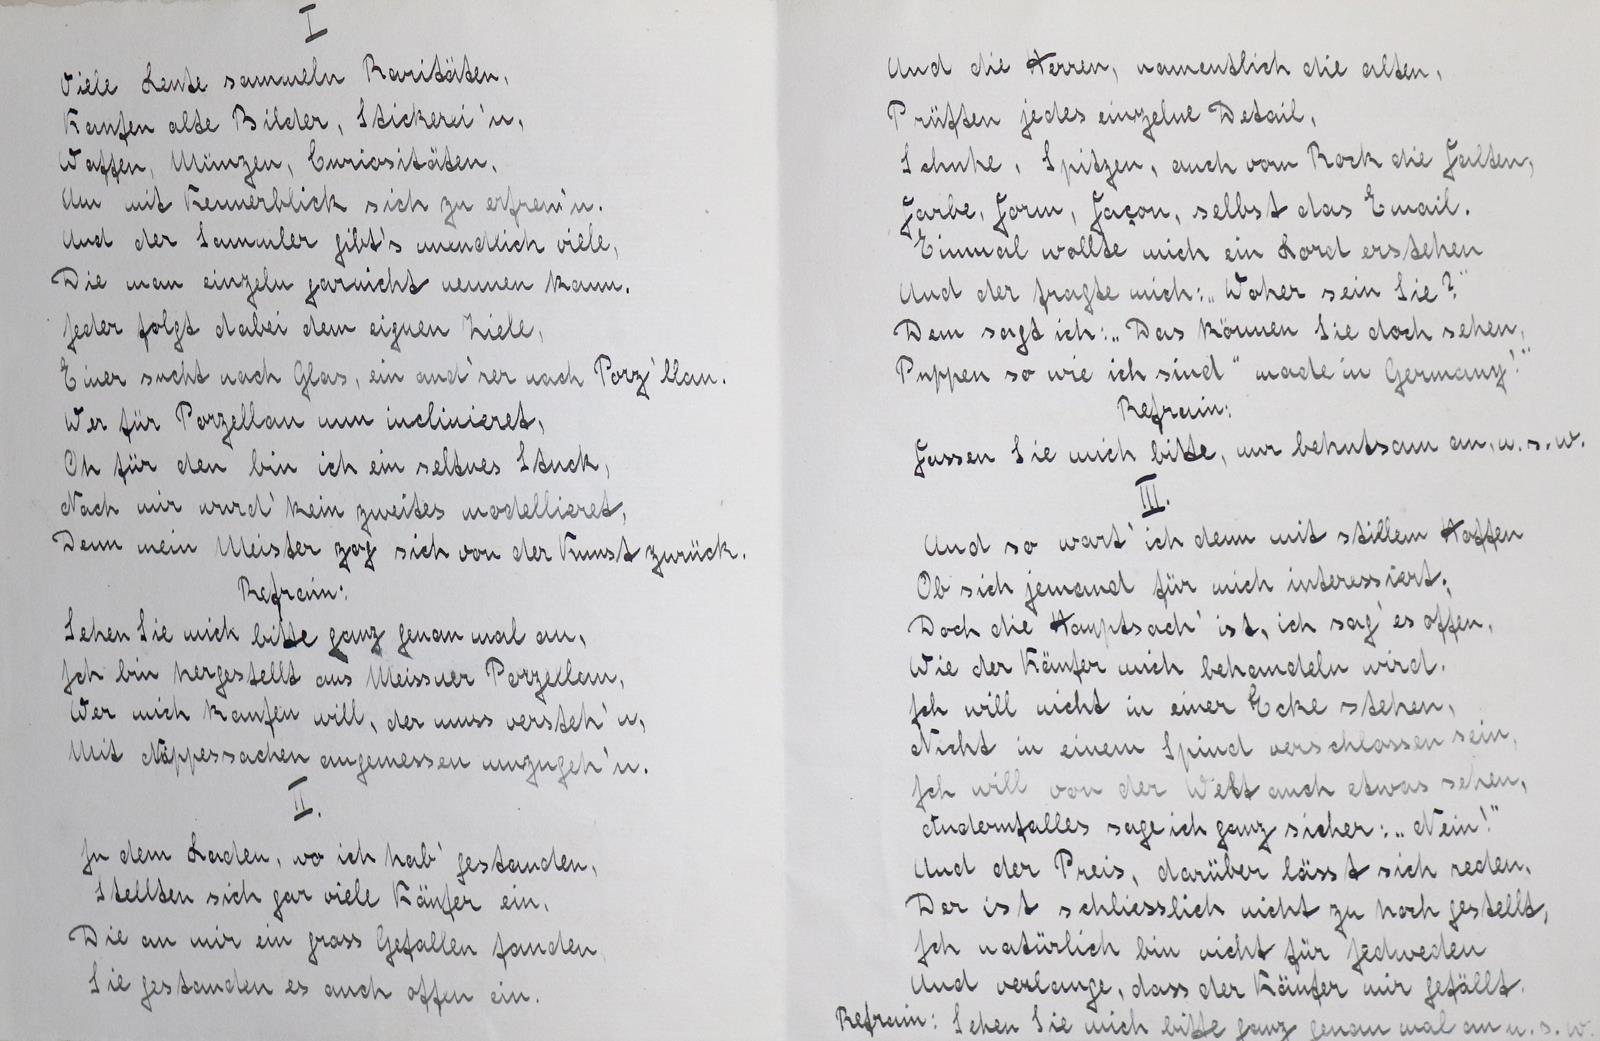 I
Viele Leute sammeln Raritäten,
Kaufen alte Bilder, Stickerei'n,
Waffen, Münzen, Curiositäten,
Um mit Kennerblick sich zu erfreu'n.
Und der Sammler gibt's unendlich viele,
Die man einzeln garnicht nennen kann.
Jeder folgt dabei dem eignen Ziele,
Einer sucht nach Glas, ein and'rer nach Porz'llan.
Wer für Porzellan nun inclinieret,
Oh für den bin ich ein seltnes Stück,
Nach mir wurd' kein zweites modellieret,
Denn mein Meister zog sich von der Kunst zurück.
Refrain:
Sehen Sie mich bitte ganz genau mal an,
Ich bin hergestellt aus Meissner Porzellan,
Wer mich kaufen will, der muss versteh'n,
Mit Näppessachen angemessen umzugeh'n.
II.
In dem Laden, wo ich hab' gestanden,
Stellten sich gar viele Käufer ein,
Die an mir ein gross Gefallen fanden,
Sie gestanden es auch offen ein.
Und die Herren, namentlich die alten,
Prüften jedes einzelne Detail,
Schuhe, Spitzen, auch vom Rock die Falten,
Farbe, Form, Façon, selbst das Email.
Einmal wollte mich ein Lord erstehen
Und der fragte mich: „Woher sein Sie?"
Dem sagt ich: „Das können Sie doch sehen,
Puppen so wie ich sind "made in Germany!""
Refrain:
Fassen Sie mich bitte, nur behutsam an, u.s.w.
III.
Und so wart' ich denn mit stillem Hoffen
Ob sich jemand für mich interessiert;
Doch die Hauptsach' ist, ich sag' es offen,
Wie der Käufer mich behandeln wird.
Ich will nicht in einer Ecke stehen,
Nicht in einem Spind verschlossen sein,
Ich will von der Welt auch etwas sehen,
Andernfalles sage ich ganz sicher: „Nein!"
Und der Preis, darüber lässt sich reden,
Der ist schliesslich nicht zu hoch gestellt,
Ich natürlich bin nicht für Jedweden
Und verlange, dass der Käufer mir gefällt.
Refrain: Sehen Sie mich bitte ganz genau mal an u.s.w.